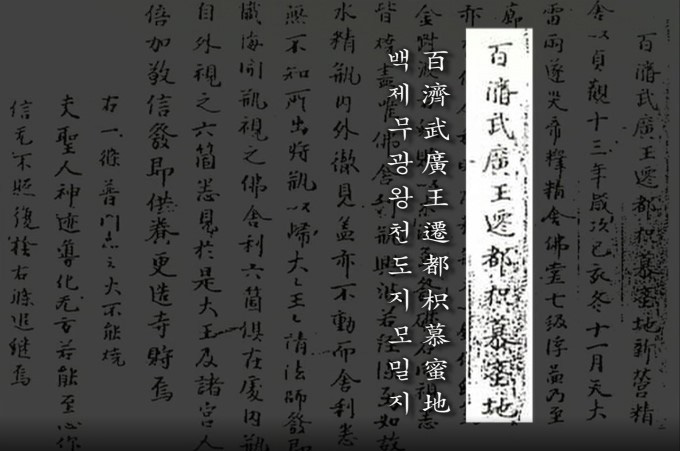 百濟武廣王遷都枳慕蜜地新營精
舍以貞觀十三年歲次己亥冬十一月天大
雷雨遂災帝釋精舍佛堂七級浮啚乃至
廊
百濟武廣王遷都枳慕蜜地
百濟武廣王遷都枳慕蜜地
백제무광왕천도지모밀지
亦
金剛波
皆燒盡唯佛舍利瓶與波若經如故
水精瓶內外徹見盖亦不動而舍利悉
無不知所出將瓶以歸大〻王〻請法師發即
懺悔開瓶視之佛舍利六箇俱在處內瓶
自外視之六箇悉見於是大王及諸宮人
倍加敬信發即供養更造寺貯焉
右一條普門品云火不能燒
夫聖人神迹導化无方若能至心作
信无不照復右條追繼焉